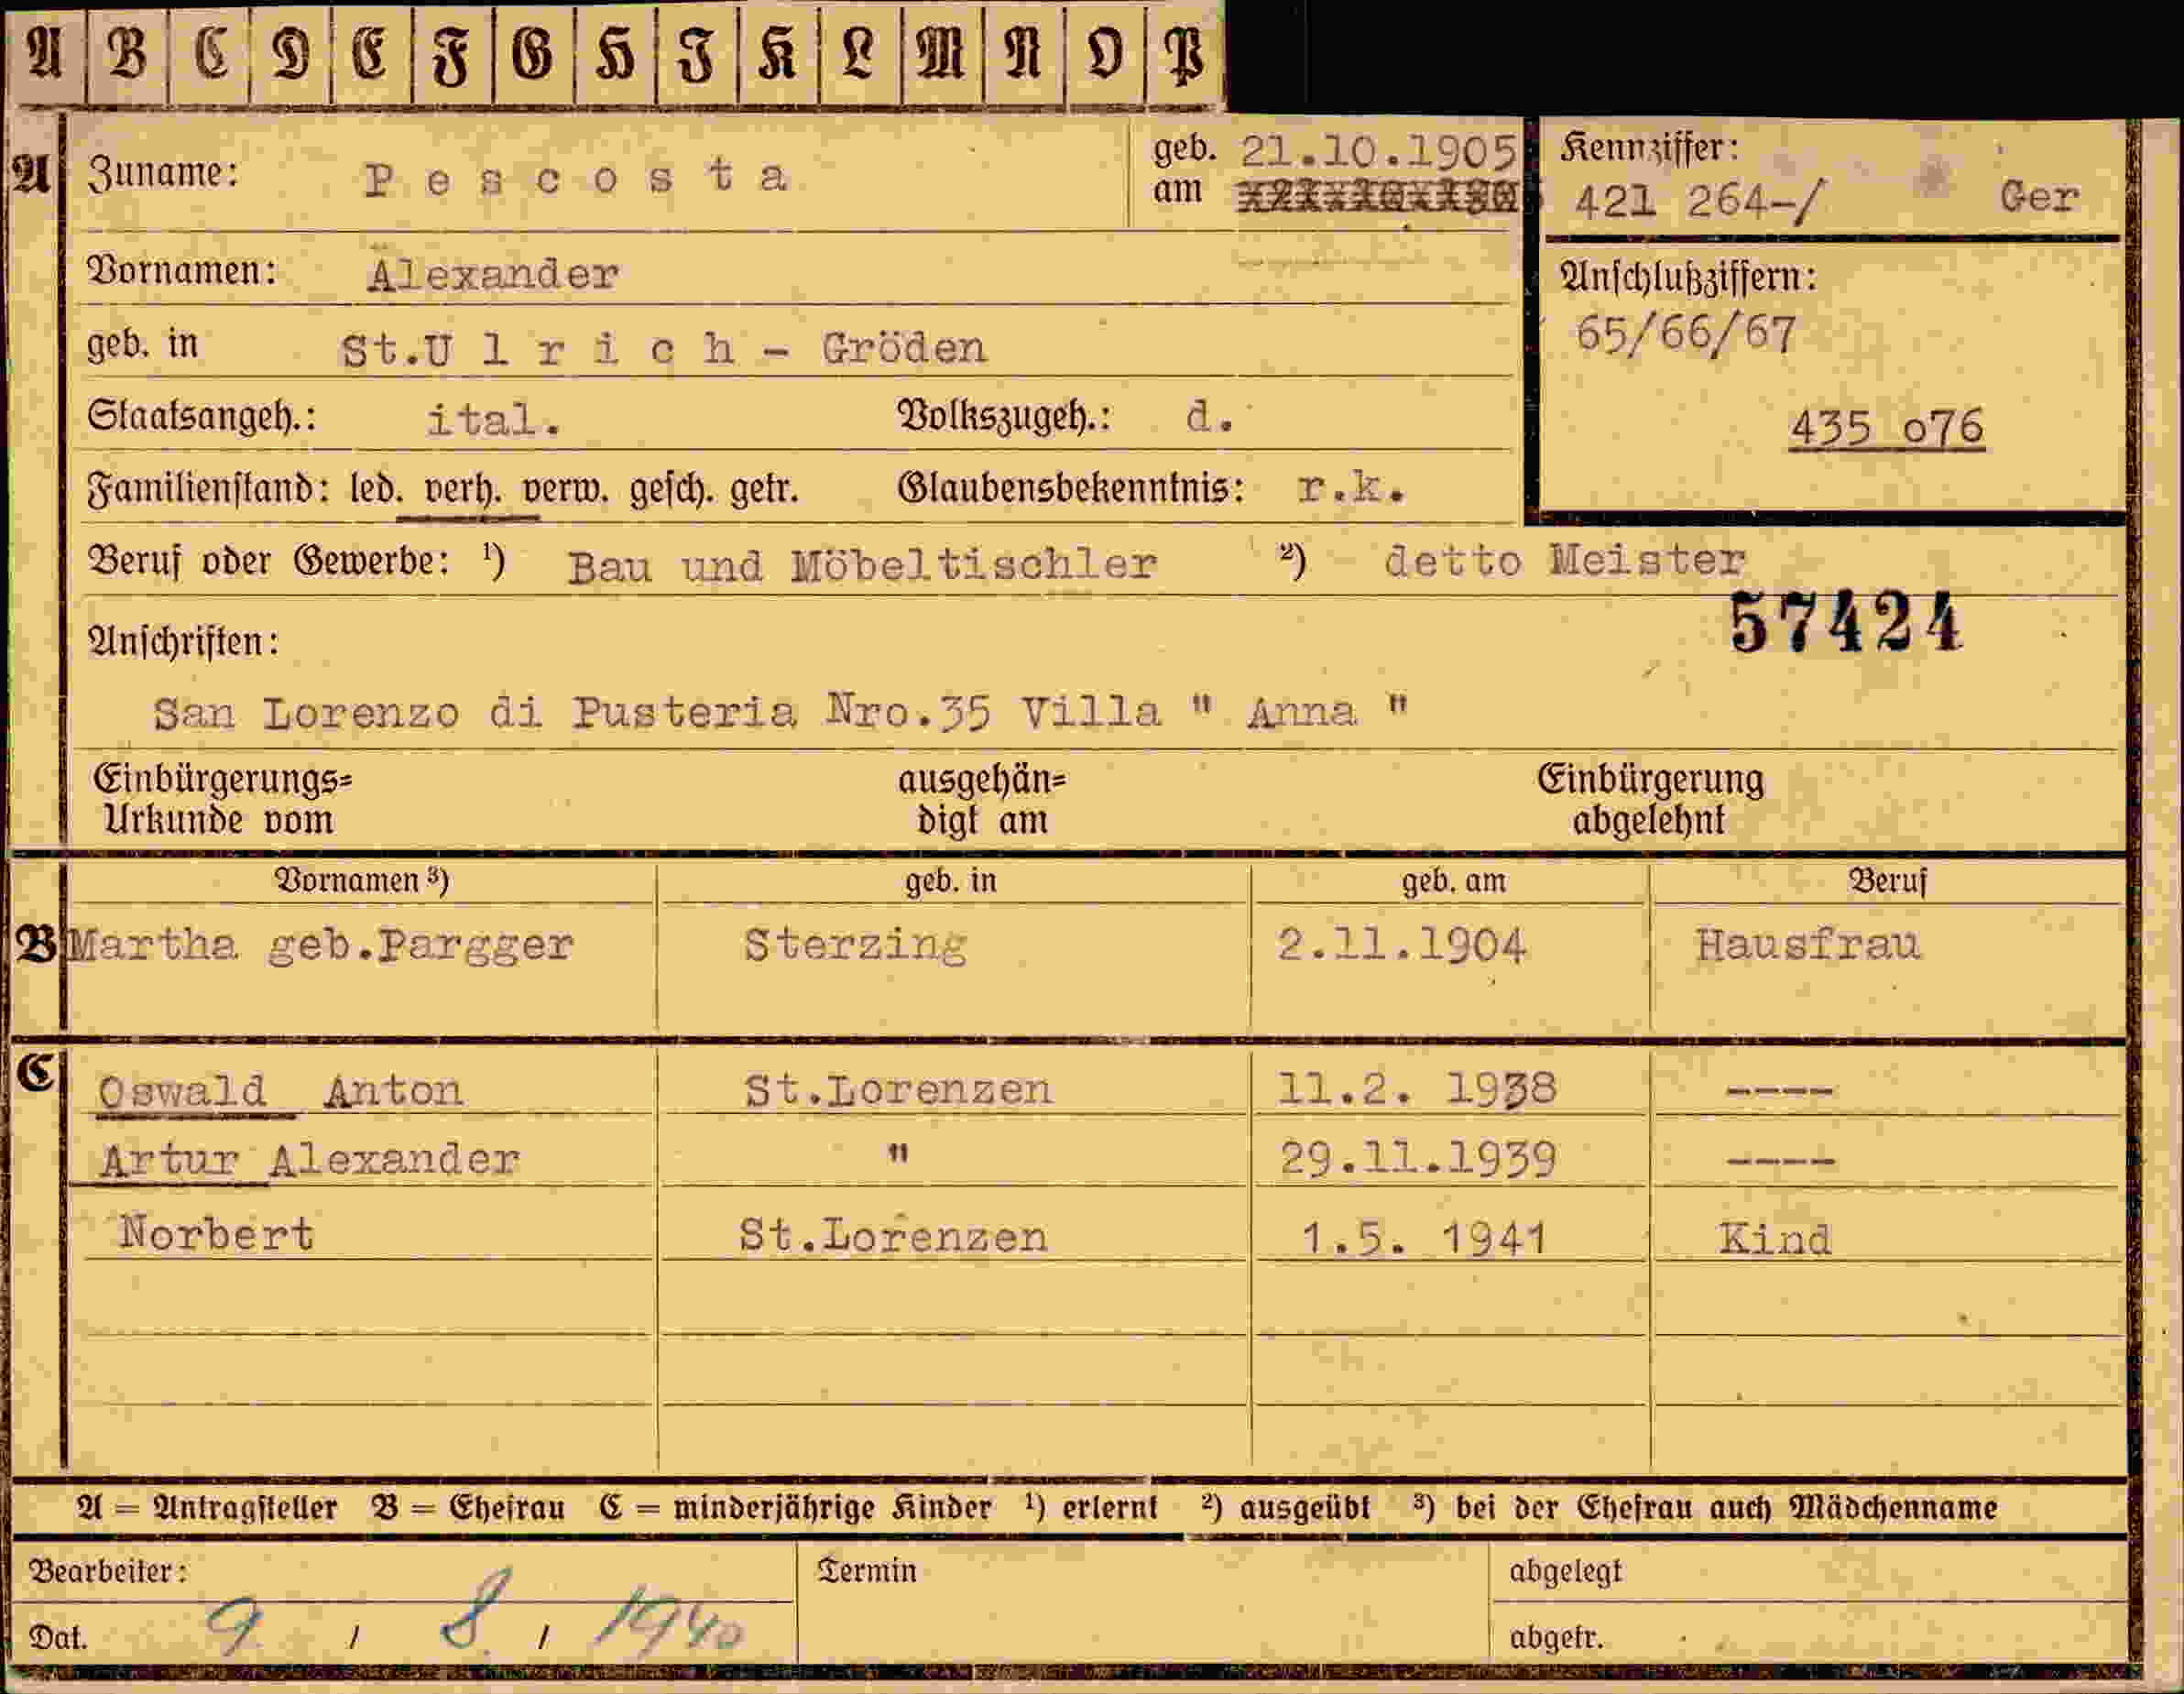 A B C D E F G H I K L M N O P
A Zuname: Pescosta geb. am 21.10.1905 Kennziffer: 421 264-/ Ger
Vornamen: Alexander
Anschlußziffern:
geb. in St.Ulrich - Gröden 65/66/67
Staatsangeh.: ital. Volkszugeh.: d. 435 o76
Familienstand: led. verh. verw. gesch. getr. Glaubensbekenntnis: r.k.
Beruf oder Gewerbe: ¹) Bau und Möbeltischler ²) detto Meister
57424
Anschriften:
San Lorenzo di Pusteria Nro.35 Villa " Anna "
Einbürgerungs= ausgehän= Einbürgerung
Urkunde vom digt am abgelehnt
Vornamen ³) geb. in geb. am Beruf
B Martha geb.Pargger Sterzing 2.11.1904 Hausfrau
C Oswald Anton St.Lorenzen 11.2. 1938 ----
Artur Alexander " 29.11.1939 ----
Norbert St.Lorenzen 1.5. 1941 Kind
A = Antragsteller B = Ehefrau C = minderjährige Kinder ¹) erlernt ²) ausgeübt ³) bei der Ehefrau auch Mädchenname
Bearbeiter: Termin abgelegt
Dat. 9 / 8 / 1940 abgetr.